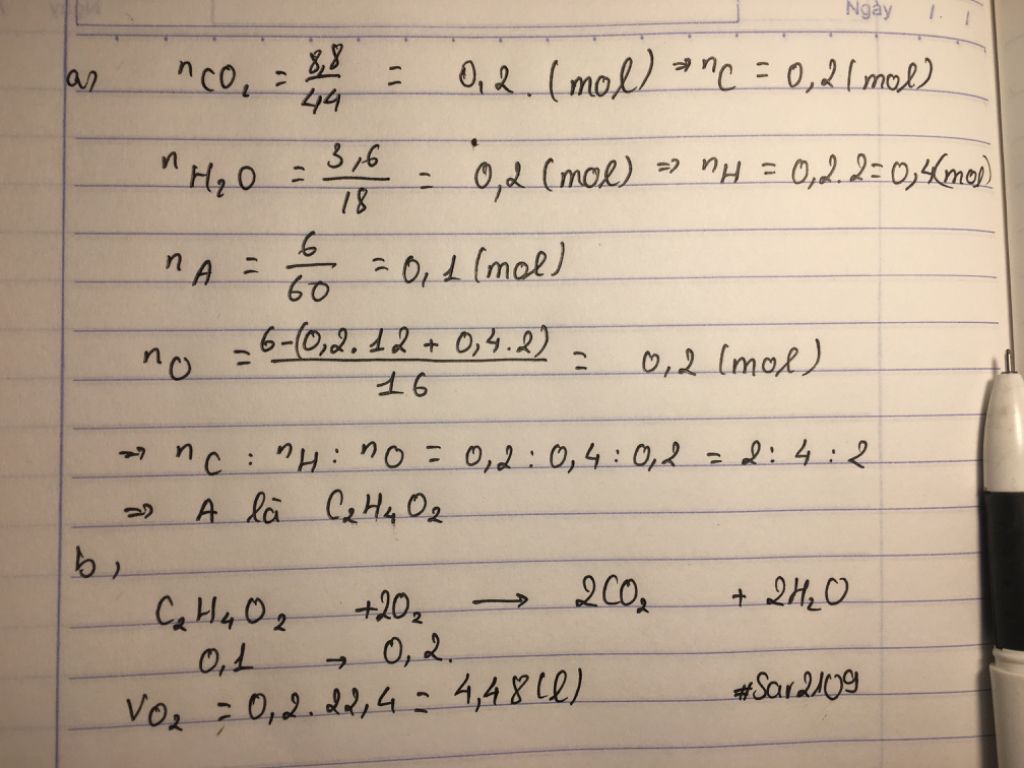 Ngày
a) nCO₂ = 8,8/44 = 0,2. (mol) ⇒ nC = 0,2 (mol)
nH₂O = 3,6/18 = 0,2 (mol) ⇒ nH = 0,2.2=0,4(mol)
nA = 6/60 = 0,1 (mol)
nO = 6-(0,2.12 + 0,4.2)/16 = 0,2 (mol)
⇒ nC : nH : nO = 0,2 : 0,4 : 0,2 = 2 : 4 : 2
⇒ A là C₂H₄O₂
b,
C₂H₄O₂ +2O₂ ⟶ 2CO₂ + 2H₂O
0,1 → 0,2.
VO₂ = 0,2.22,4 = 4,48(l) #Sar2109